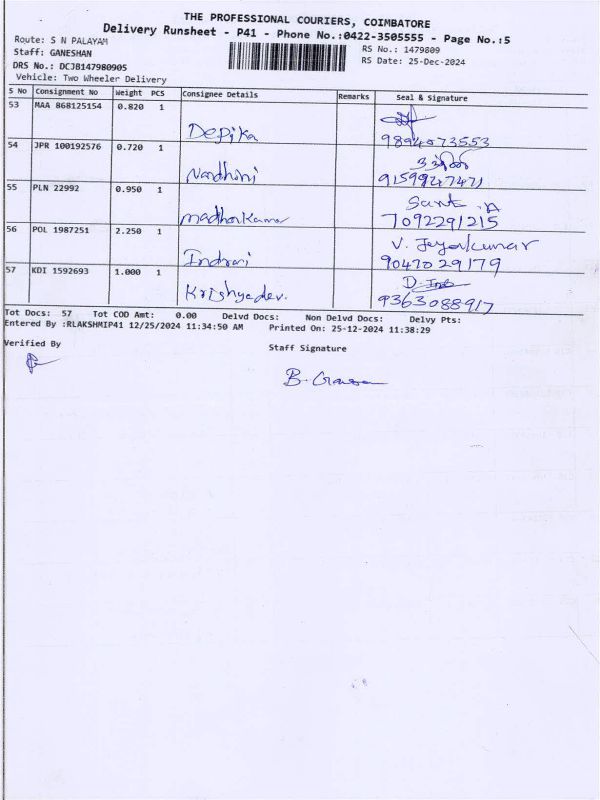 THE PROFESSIONAL COURIERS, COIMBATORE
Delivery Runsheet - P41 - Phone No.:0422-3505555 - Page No.:5
Route: S N PALAYAM
RS No.: 1479809
Staff: GANESHAN
RS Date: 25-Dec-2024
DRS No.: DCJB147980905
Vehicle: Two Wheeler Delivery
S No Consignment No Weight PCS Consignee Details Remarks Seal & Signature
53 MAA 868125154 0.820 1
Depika 9894073553
54 JPR 100192576 0.720 1
Nandhini 9159947471
55 PLN 22992 0.950 1
7092291215
56 POL 1987251 2.250 1 V. Jayakumar
Indrani 9047029179
57 KDI 1592693 1.000 1
9363088917
Tot Docs: 57 Tot COD Amt: 0.00 Delvd Docs: Non Delvd Docs: Delvy Pts:
Entered By :RLAKSHMIP41 12/25/2024 11:34:50 AM Printed On: 25-12-2024 11:38:29
Verified By
Staff Signature